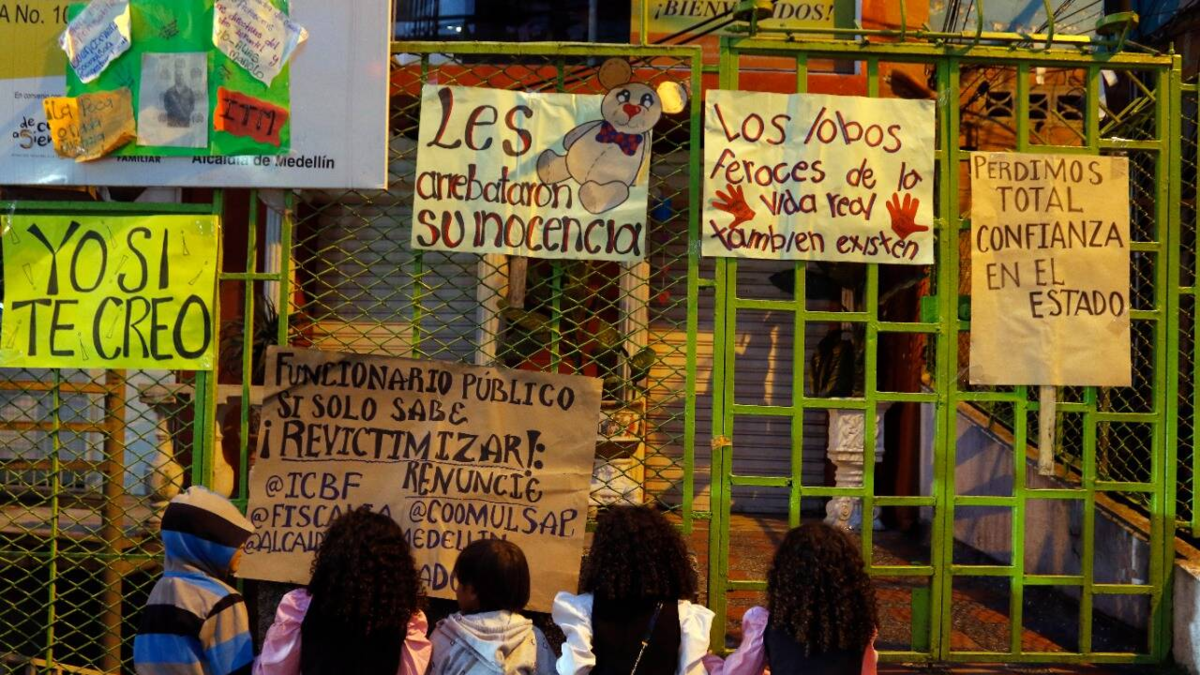 A No. 10
¡BIENVENIDOS!
En convenio
FAMILIAR
Alcaldía de Medellín
ITM
YO SI
TE CREO
Les
arrebataron
su inocencia
Los lobos
feroces de la
vida real
tambien existen
PERDIMOS
TOTAL
CONFIANZA
EN EL
ESTADO
FUNCIONARIO PÚBLICO
SI SOLO SABE
¡REVICTIMIZAR!:
RENUNCIE
@ICBF
@FISCALIA @COOMULSAP
@ALCALD MEDELLIN
ADO